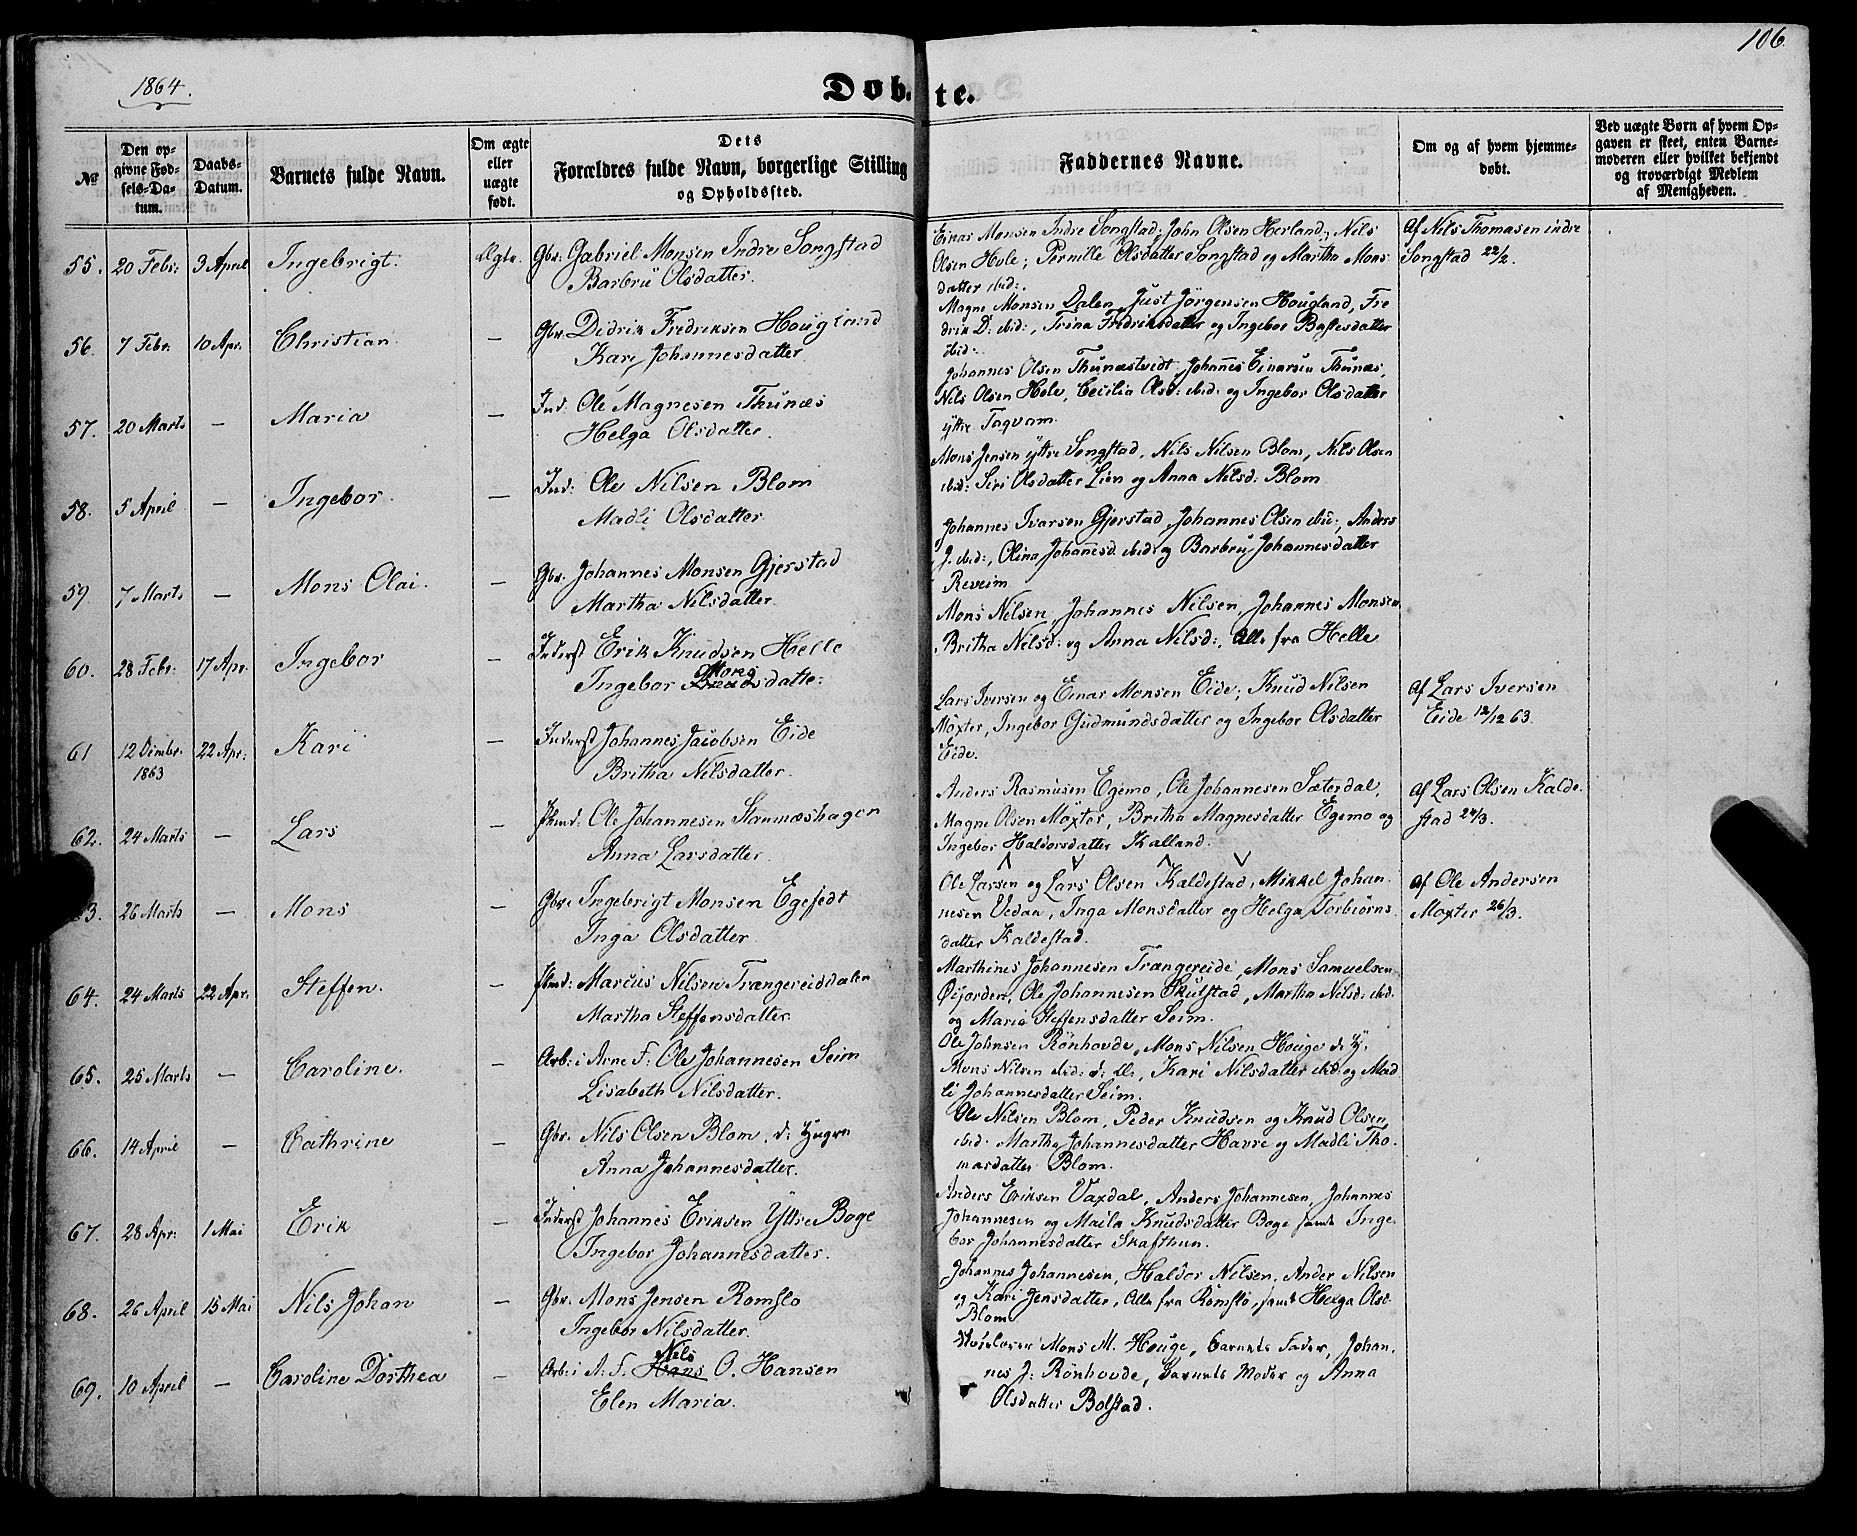 106
1864.
Døbte.
No
Den opgivne Fødsels-Datum.
Daabs-Datum.
Barnets fulde Navn.
Om ægte eller uægte født.
Dets Forældres fulde Navn, borgerlige Stilling og Opholdssted.
Faddernes Navne.
Om og af hvem hjemmedøbt.
Ved uægte Børn af hvem Opgaven er skeet, enten Barnemoderen eller hvilket bekjendt og troværdigt Medlem af Menigheden.
55. 20 Febr: 3 April Ingebrigt. Ægte. Gbr: Gabriel Monsen Indre Songstad
Barbru Olsdatter.
Einar Monsen Indre Songstad, John Olsen Herland, Nils
Olsen Hole; Pernille Olsdatter Songstad og Martha Mons
datter ibid:.
Af Nils Thomasen indre
Songstad 22/2.
56. 7 Febr. 10 Apr. Christian. — Gbr. Didrik Fredriksen Hougland
Kari Johannesdatter.
Magne Monsen Dalen, Just Jørgensen Hougland, Fre
drik D: ibid:, Trina Fredriksdatter og Ingebor
ibid:.
57. 20 Marts — Maria — Ind: Ole Magnesen Thunæs
Helga Olsdatter.
Johannes Olsen Thunæstvedt, Johanes Einarsen Thunæs,
Nils Olsen Hole, Cecilia Olsd: ibid: og Ingebor Olsdatter
yttre Toqvam.
58. 5 April — Ingebor. — Ind: Ole Nilsen Blom
Madli Olsdatter.
Mons Jensen yttre Songstad, Nils Nilsen Blom, Nils Olsen
ibid: Siri Olsdatter Lien og Anna Nilsd: Blom
59. 7 Marts — Mons Olai. — Gbr. Johannes Monsen Gjerstad
Martha Nilsdatter.
Johannes Ivarsen Gjerstad, Johannes Olsen ibid:, Anders
J. ibid:, Olina Johanesd. ibid: og Barbru Johannesdatter
Reveim
60. 28 Febr: 17 Apr. Ingebor — Inderst Erik Knudsen Helle
Ingebor Knudsdatter
Mons Nilsen, Johannes Nilsen, Johannes Monsen,
Britha Nilsd: og Anna Nilsd:, Alle fra Helle
61 12 Dember. 1863 22 Apr: Kari — Inderst Johannes Jacobsen Eide
Britha Nilsdatter.
Lars Iversen og Einar Monsen Eide; Knud Nilsen
Møxter, Ingebor Gudmundsdatter og Ingebor Olsdatter
Eide.
Af Lars Iversen
Eide 12/12 63.
62. 24 Marts — Lars — Ole Johannesen Stamnæshagen
Anna Larsdatter.
Anders Rasmusen Egemo, Ole Johannesen Sæterdal,
Magne Olsen Møxter, Britha Magnesdatter Egemo og
Ingebor Haldorsdatter Kalland.
Af Lars Olsen Kalde
stad 24/3.
3. 26 Marts — Mons — Gbr: Ingebrigt Monsen Egefedt
Inga Olsdatter.
Ole Larsen og Lars Olsen Kaldestad, Mikkel Johan
nesen Vedaa, Inga Monsdatter og Helga Torbiørns
datter Kaldestad.
Af Ole Andersen
Møxter 26/3.
64. 24 Marts 22 Apr. Steffen. — Marcus Nilsen Trangereiddalen
Martha Steffensdatter.
Marthines Johannesen Trangereide, Mons Samuelsen
Øijorden, Ole Johannesen Skulstad, Martha Nilsd: ibid.
og Maria Steffensdatter Seim.
65. 25 Marts — Caroline. — Arb: i Arne F: Ole Johannesen Seim
Lisabeth Nilsdatter.
Ole Johnsen Rønhovde, Mons Nilsen Houge d: Y.
Mons Nilsen ibid: d: Æ:, Kari Nilsdatter ibid. og Mad
li Johannesdatter Seim.
66. 14 April — Cathrine — Gbr: Nils Olsen Blom, d: Yngre
Anna Johannesdatter.
Ole Nilsen Blom, Peder Knudsen og Knud Olsen,
ibid. Martha Johannesdatter Havre og Madli Tho
masdatter Blom.
67. 28 Apr: 1 Mai Erik — Inderst Johannes Eriksen Yttre Boge
Ingebor Johannesdatter.
Anders Eriksen Vaxdal, Anders Johannesen, Johannes
Johannesen og Maila Knudsdatter Boge samt Inge
bor Johannesdatter Skafthun.
68. 26 April 15 Mai Nils Johan — Gbr: Mons Jensen Romslo
Ingebor Nilsdatter.
Johannes Johannesen, Haldor Nilsen, Ander Nilsen
og Kari Jensdatter, Alle fra Romslo, samt Helga Olsd
Blom
69. 10 April — Caroline Dorthea — Arb: i A. F. Hans Nils O. Hansen
Elen Maria.
Mons M. Houge, Barnets Fader, Johan
nes J. Rønhovde, Barnets Moder og Anna
Olsdatter Bolstad.